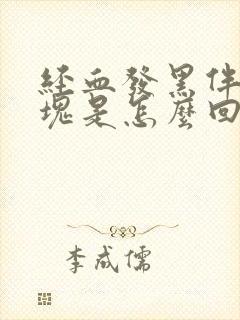 經血發黑伴
塊是怎麼回
李成儒